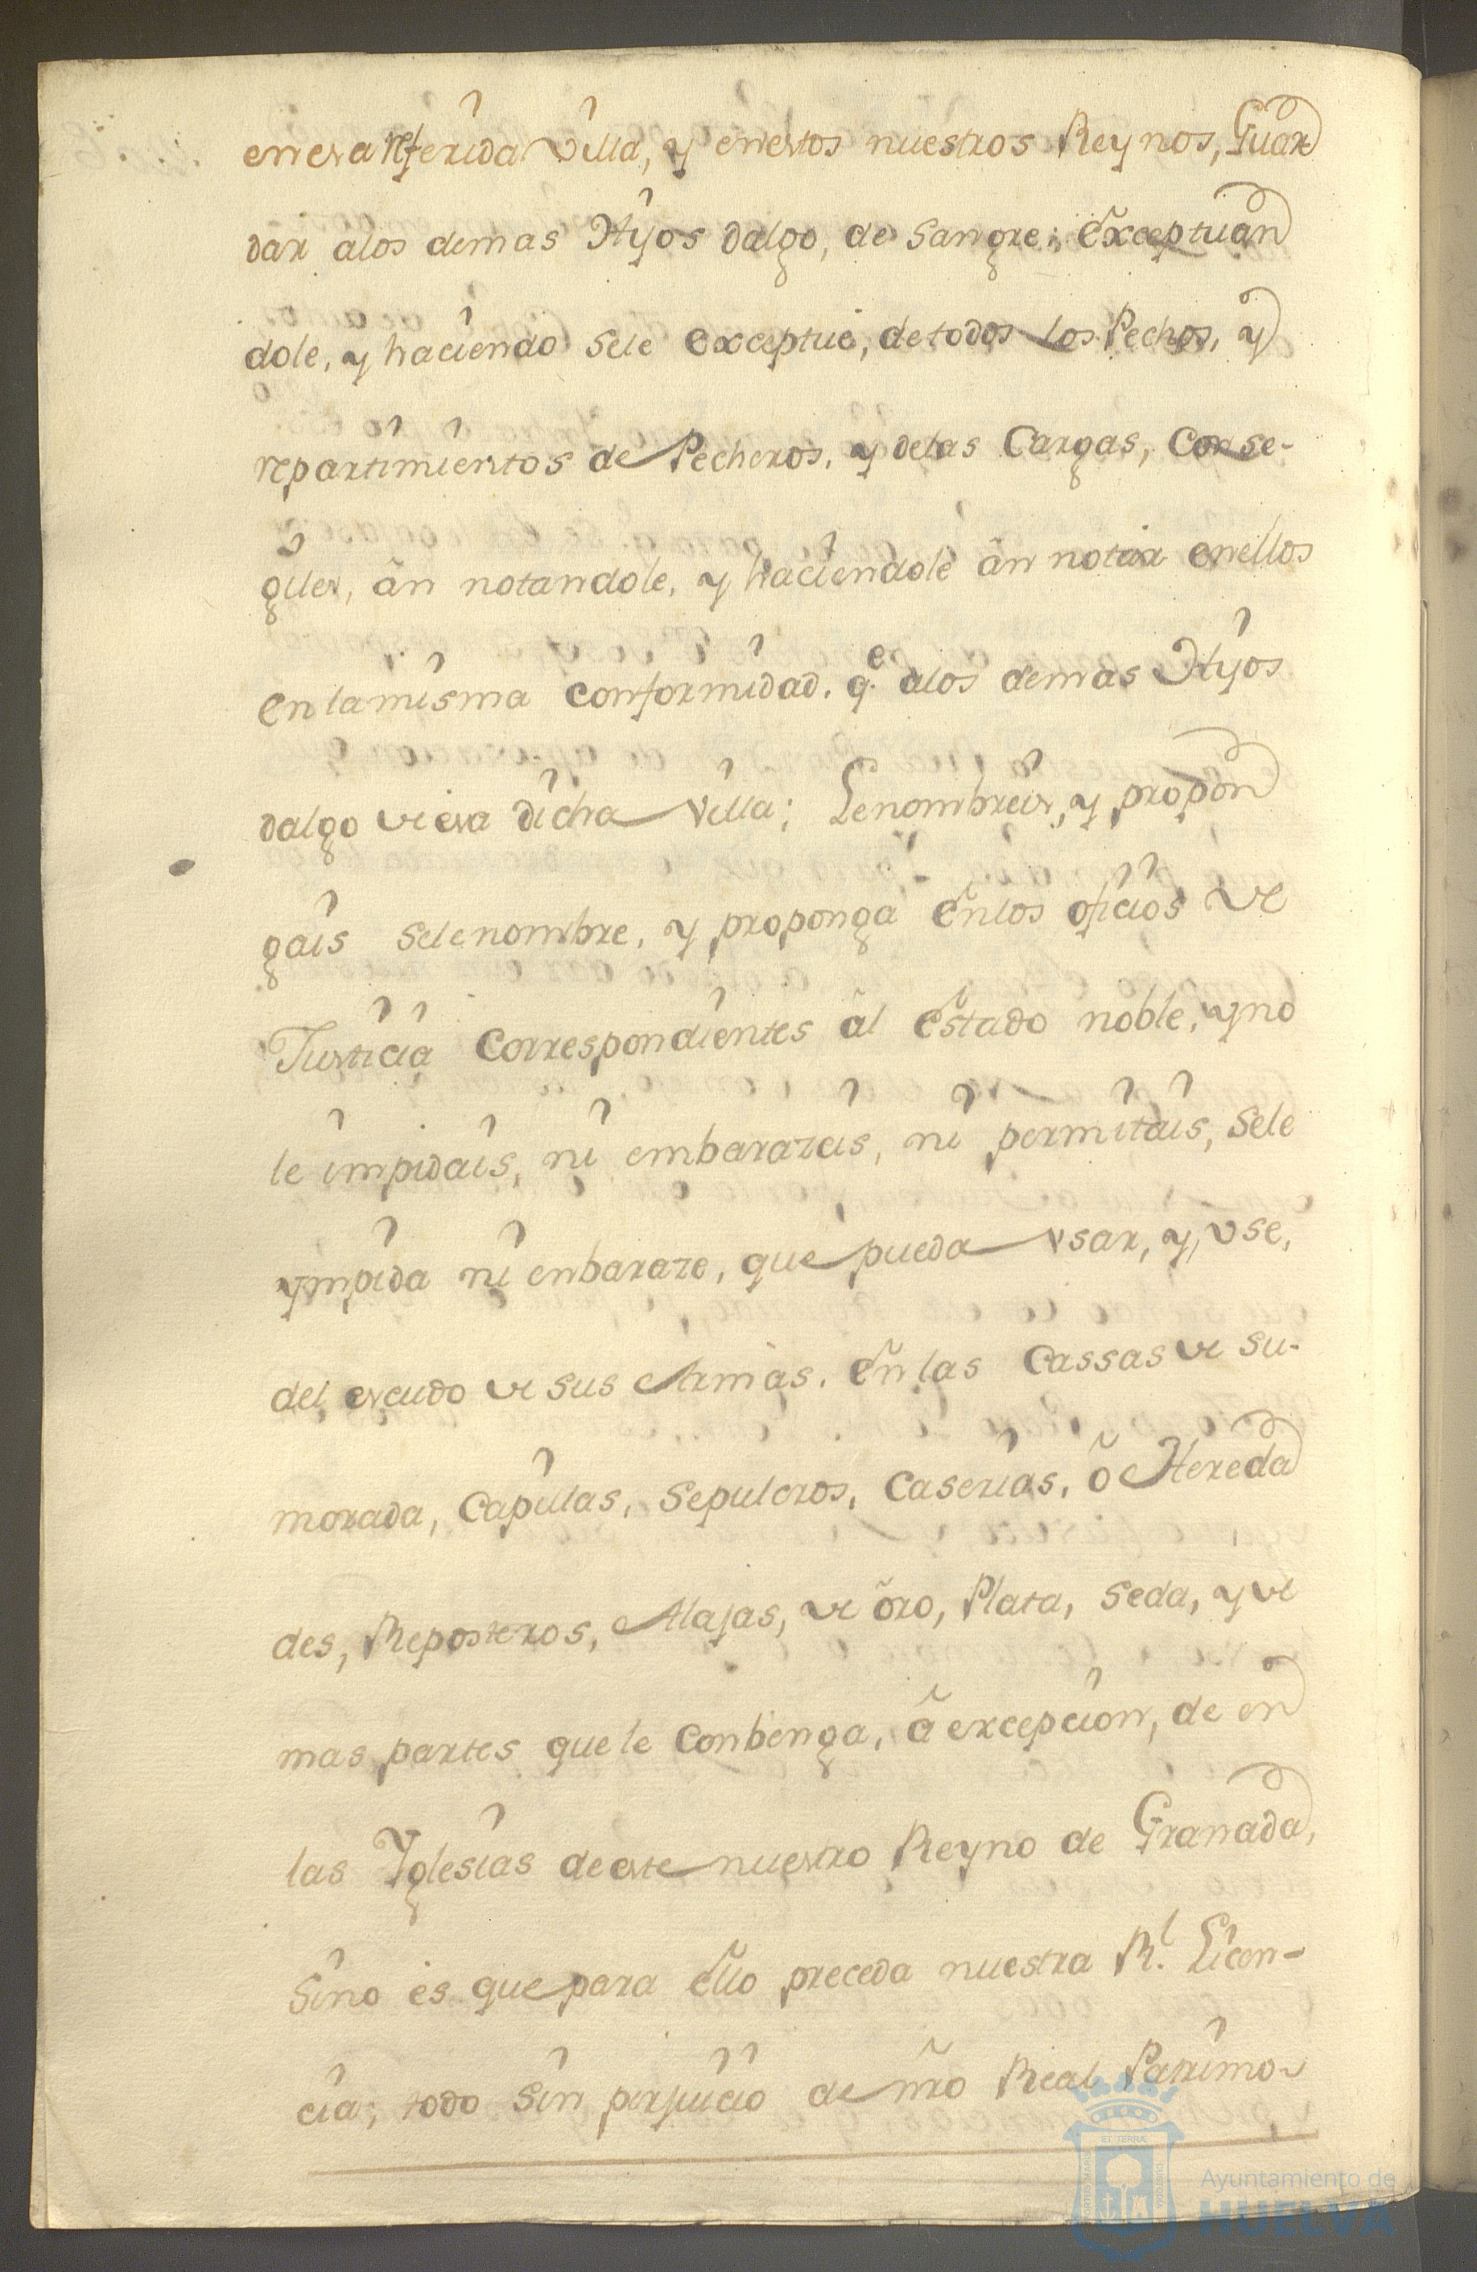 en esa referida Villa, y en estos nuestros Reynos, Guar
dar alos demas Hijos dalgo, de Sangre; exceptuan
dole, y haciendo sele exceptue, de todos los Pechos, y
repartimientos de Pecheros, y delas Cargas, Conse-
giles, ãn notandole, y haciendole ãn notar enellos
en la misma conformidad, q.e alos demas Hijos
dalgo de esa dicha Villa; Le nombreis, y propon
gais sele nombre, y proponga en los oficios de
Justicia Correspondientes ãl estado noble, y no
le impidais, ni embarazeis, ni permitais, sele
ympida ni enbaraze, que pueda vsar, y, vse,
del escudo de sus Armas, en las Cassas de su-
morada, Capillas, Sepulcros, Caserias, õ Hereda
des, Reposteros, Alajas, de õro, Plata, Seda, y de
mas partes que le Conbenga, ã excepcion, de en
las Yglesias de este nuestro Reyno de Granada,
Sino es que para ello preceda nuestra R.l Licen-
cia; todo sin perjuicio de nr̃o Real Patrimo-
ET TERRÆ
Ayuntamiento de
HUELVA